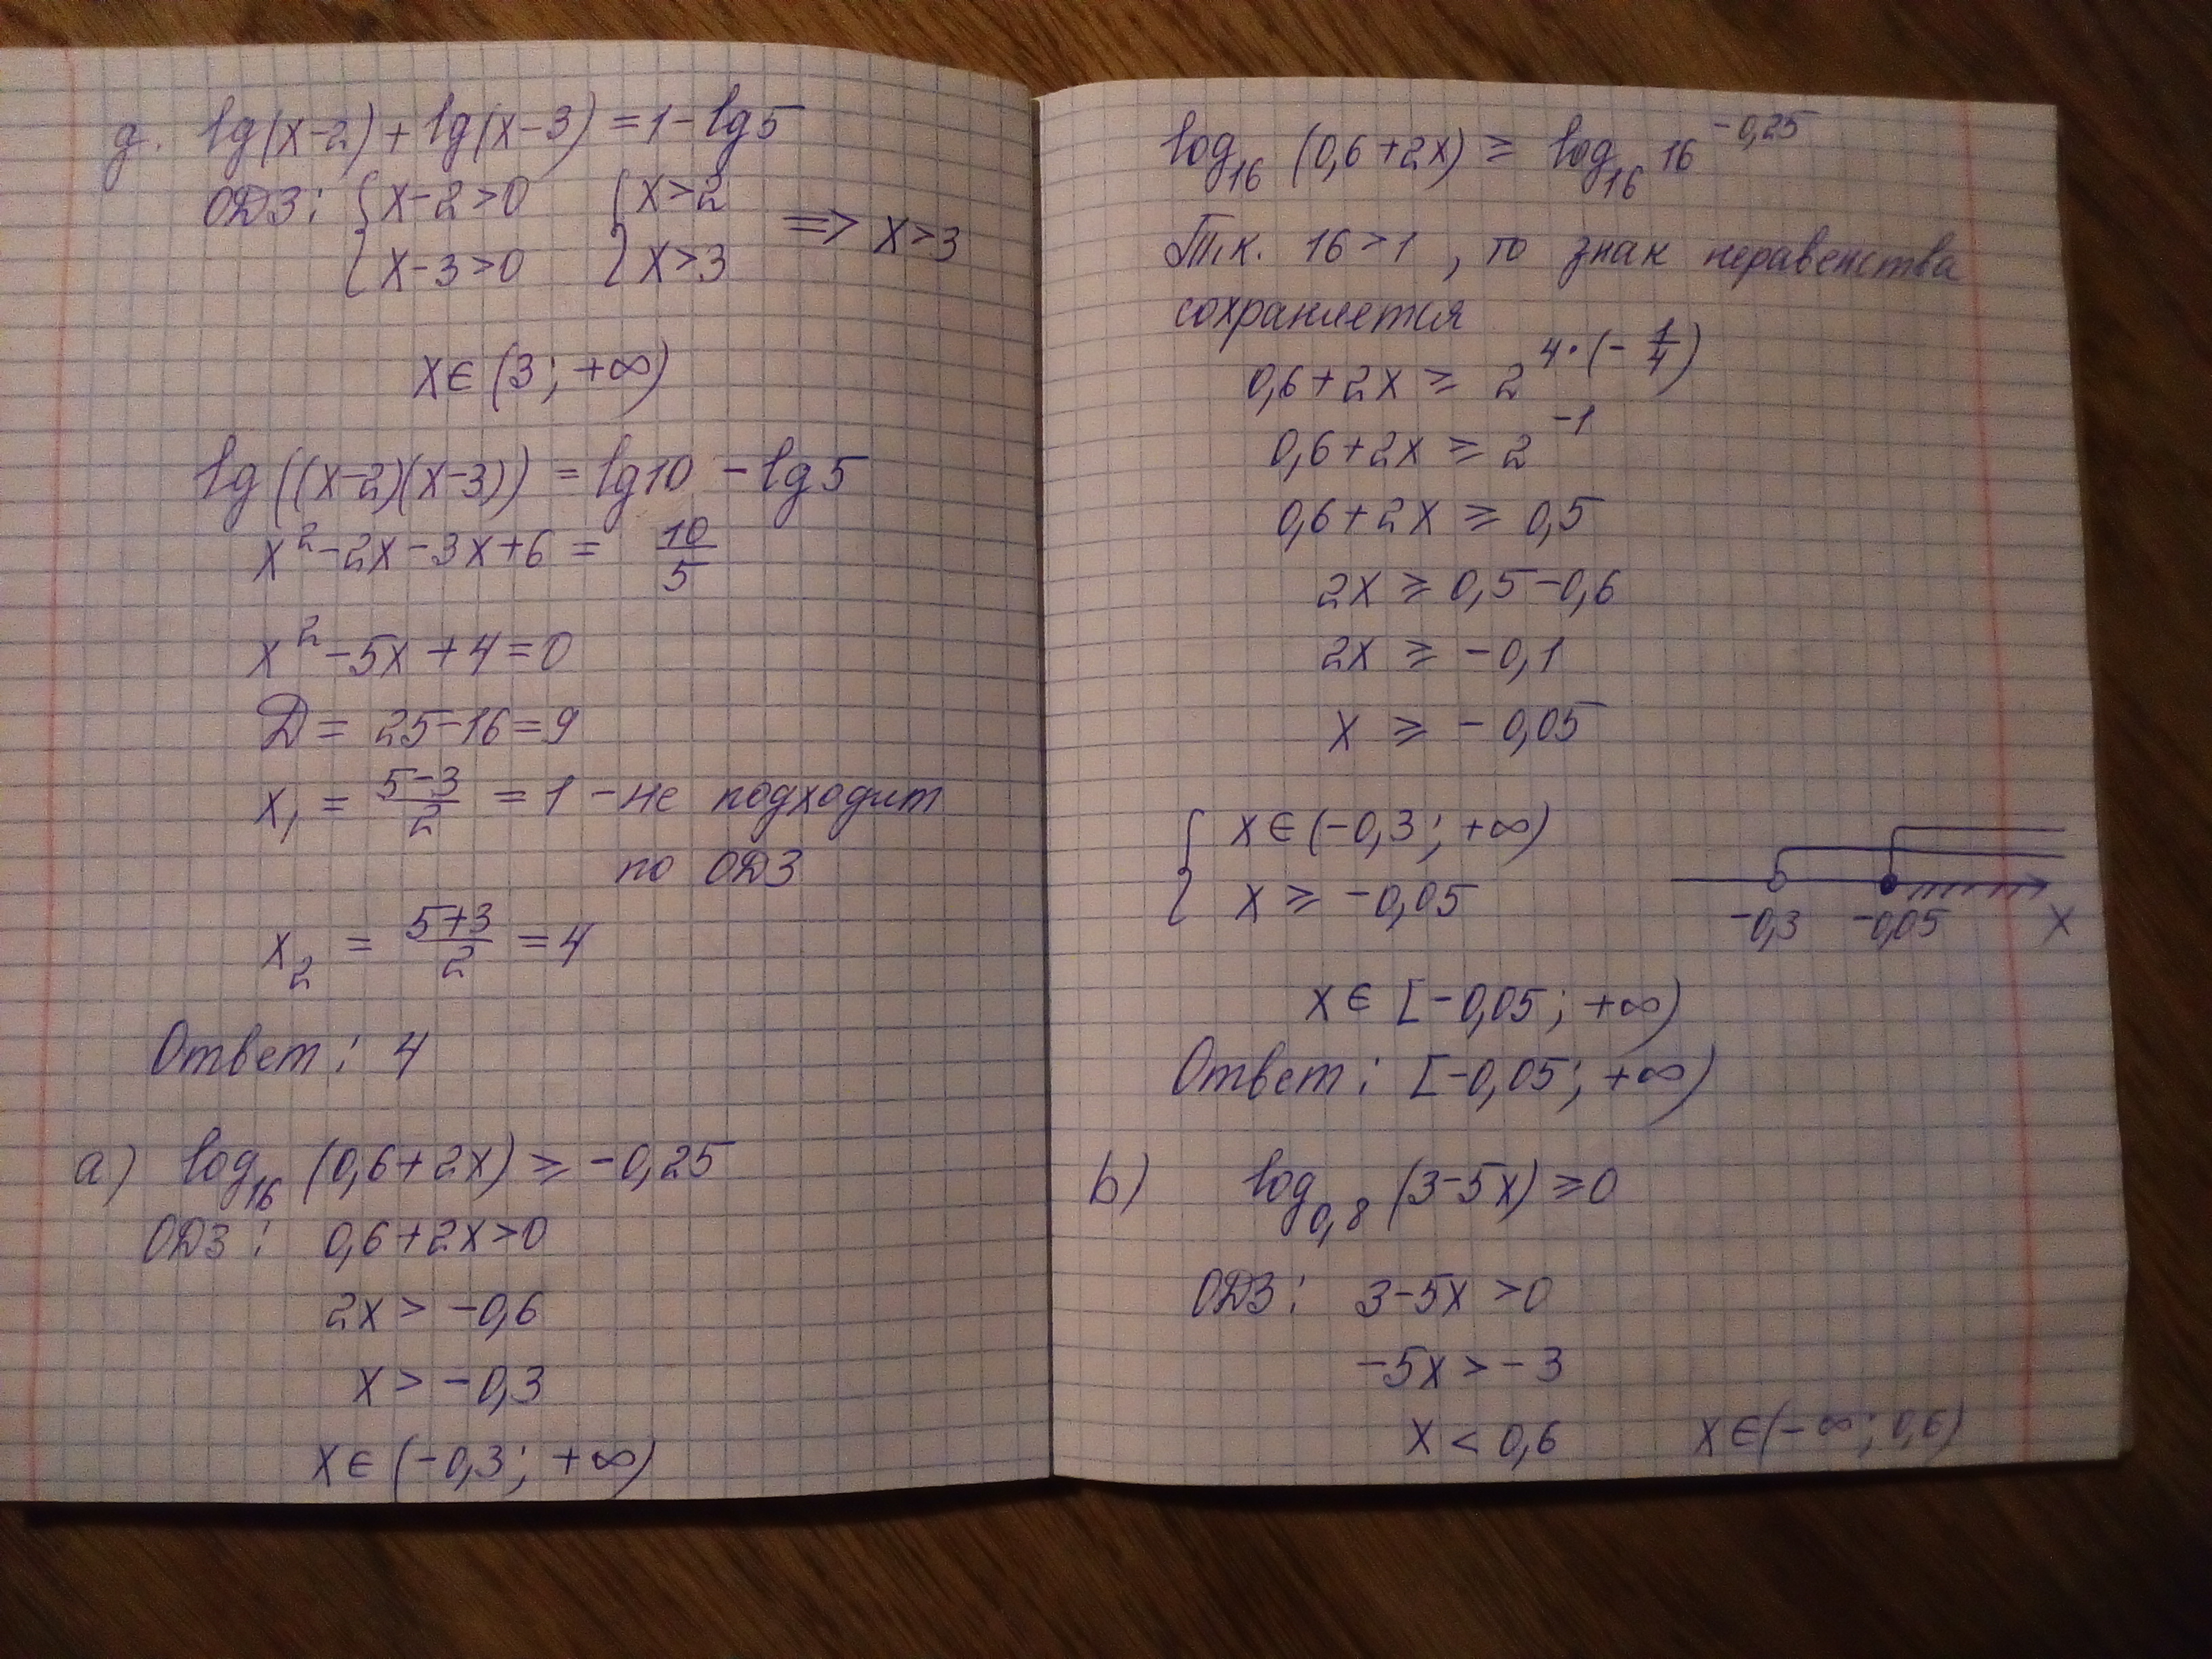 g. lg(x-2)+lg(x-3)=1-lg5
ОДЗ: {x-2>0 {x>2
{x-3>0 {x>3 => x>3
x∈(3; +∞)
lg((x-2)(x-3))=lg10-lg5
x²-2x-3x+6= 10/5
x²-5x+4=0
D=25-16=9
x₁ = (5-3)/2 = 1 - не подходит
по ОДЗ
x₂ = (5+3)/2 = 4
Ответ: 4
a) log₁₆(0,6+2x) ≥ -0,25
ОДЗ: 0,6+2x>0
2x > -0,6
x > -0,3
x∈(-0,3; +∞)
log₁₆(0,6+2x) ≥ log₁₆16^(-0,25)
Т.к. 16>1, то знак неравенства
сохраняется
0,6+2x ≥ 2^(4·(-1/4))
0,6+2x ≥ 2⁻¹
0,6+2x ≥ 0,5
2x ≥ 0,5-0,6
2x ≥ -0,1
x ≥ -0,05
{x∈(-0,3; +∞)
{x ≥ -0,05
-0,3 -0,05 x
x∈[-0,05; +∞)
Ответ: [-0,05; +∞)
b) log₀,₈(3-5x) ≥ 0
ОДЗ: 3-5x>0
-5x > -3
x < 0,6 x∈(-∞; 0,6)